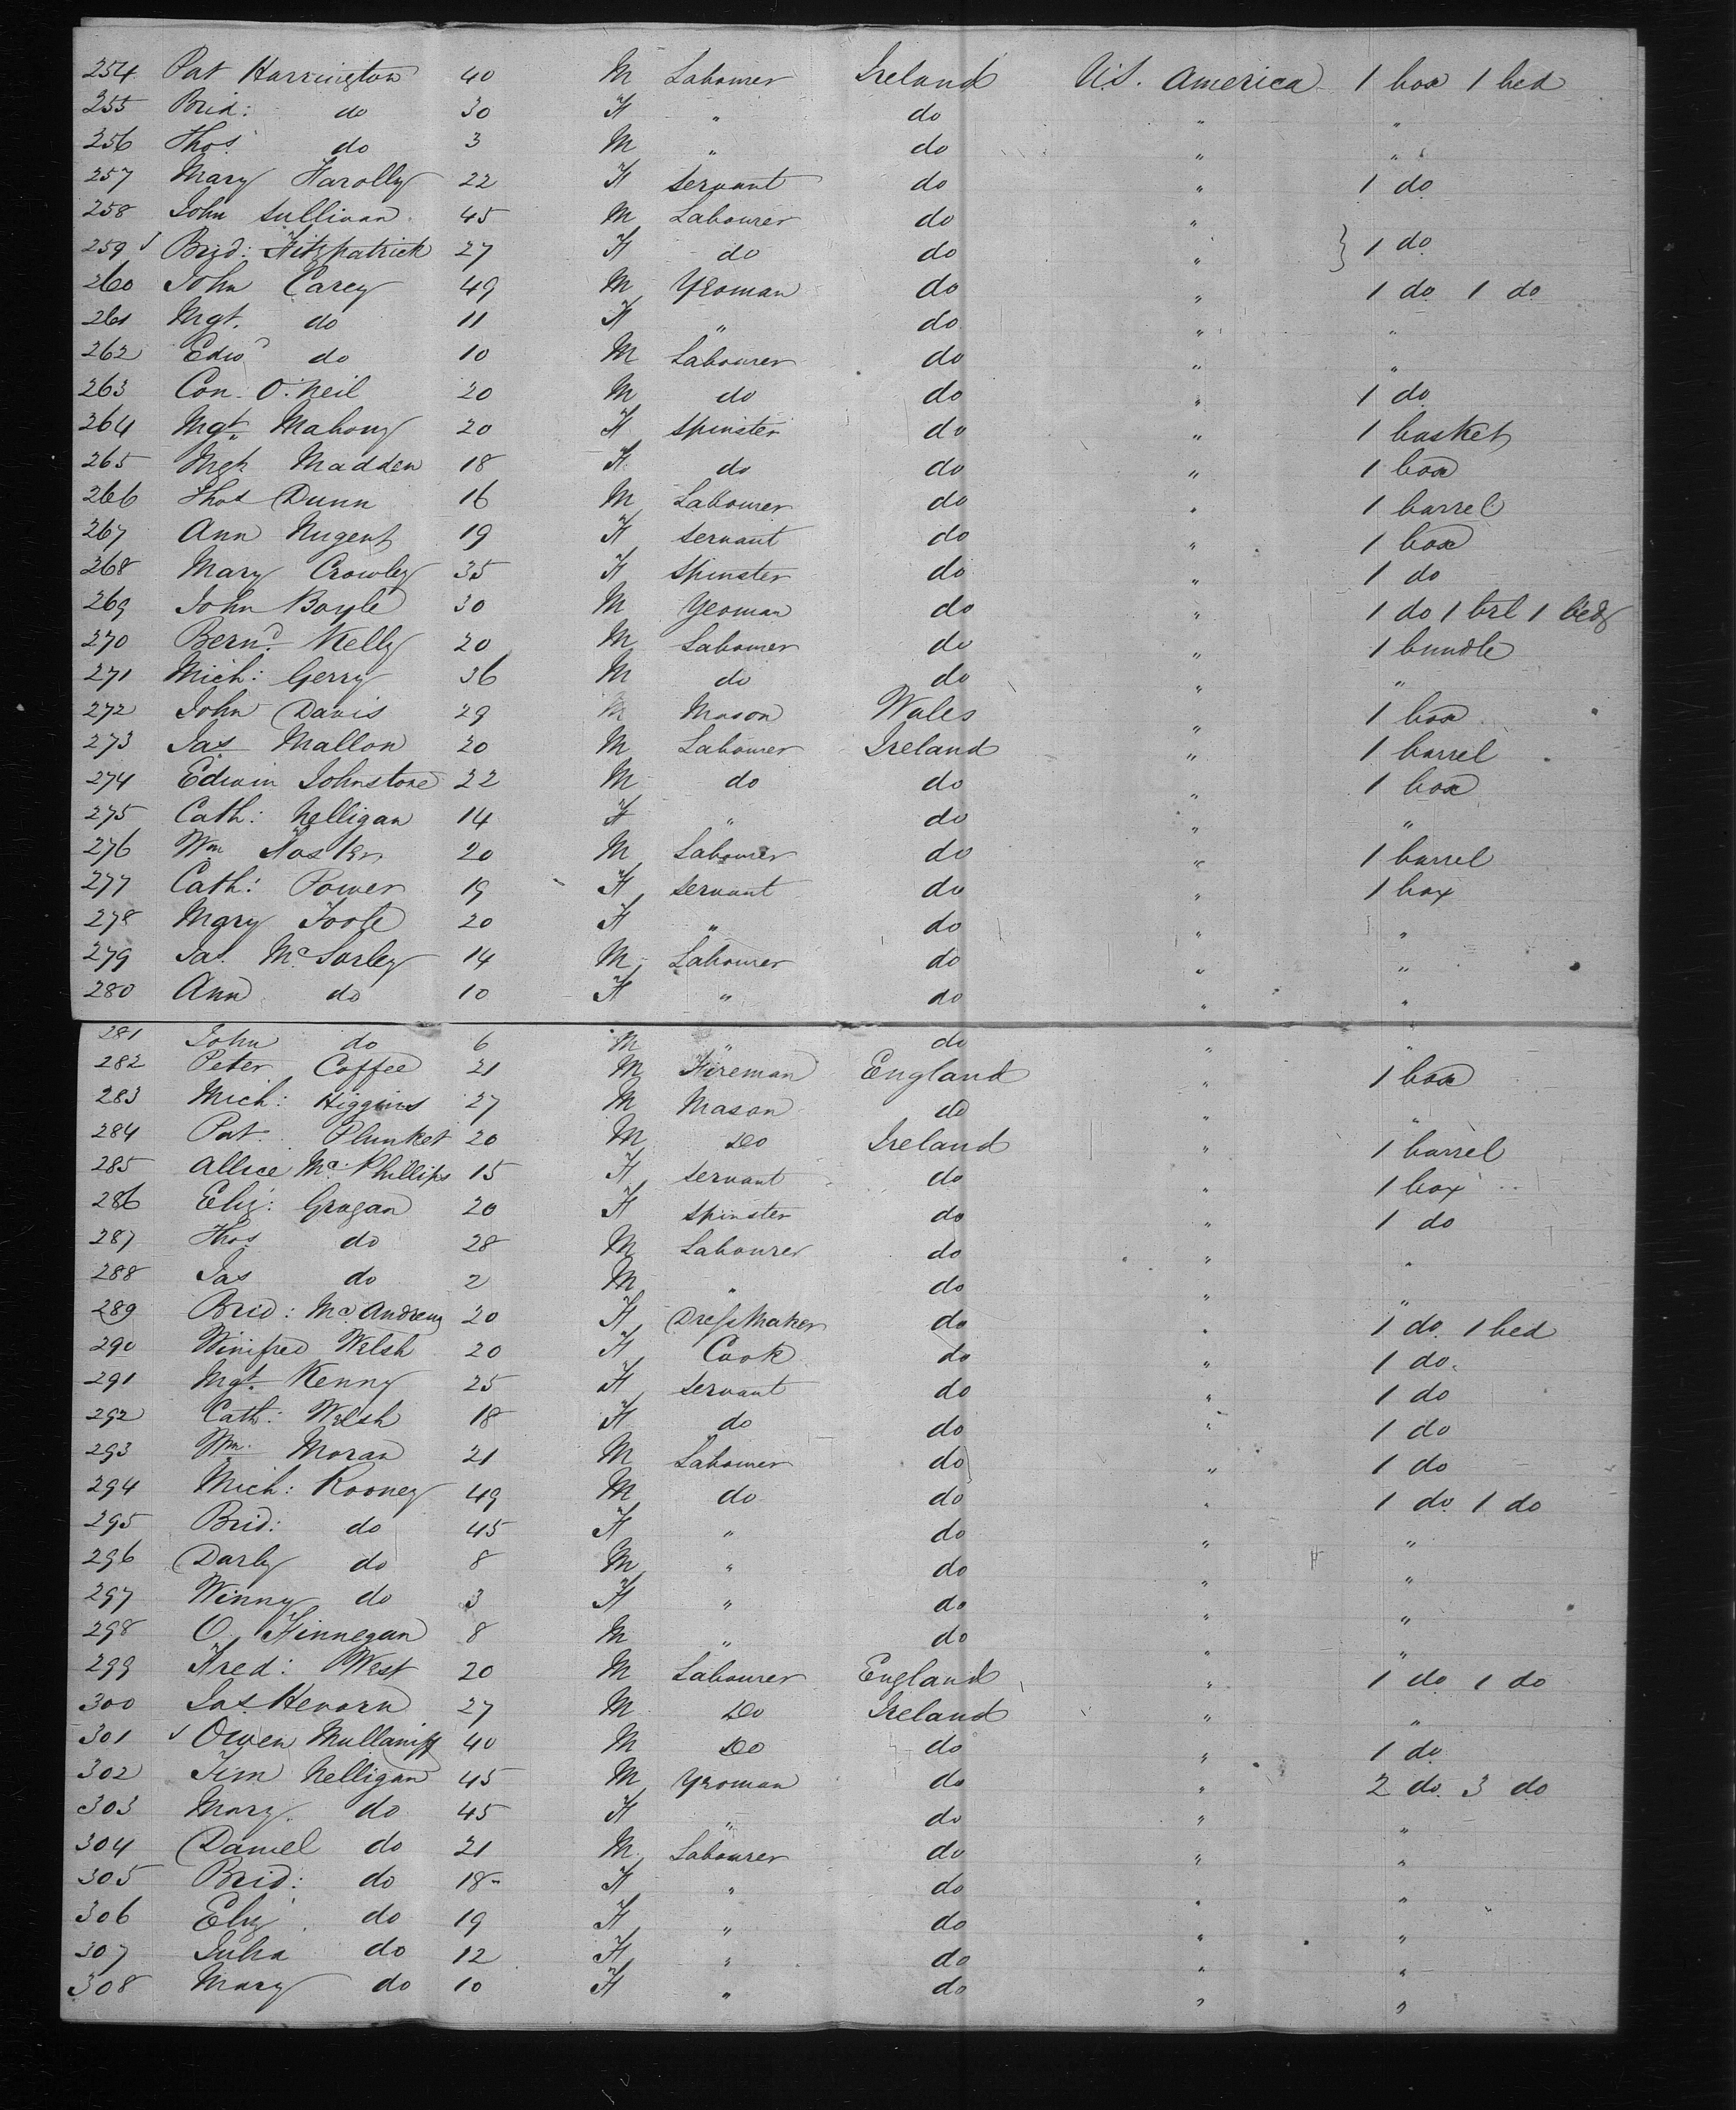 254 Pat Harrington 40 M Labourer Ireland U.S. America 1 box 1 bed
255 Brid: do 30 F " do " "
256 Thos. do 3 M " do " "
257 Mary Farolly 22 F Servant do " 1 do
258 John Sullivan 45 M Labourer do "
259 Brid: Fitzpatrick 27 F do do " 1 do
260 John Carey 49 M Yeoman do " 1 do 1 do
261 Mgt. do 11 F " do " "
262 Edwd do 10 M Labourer do " "
263 Con. O'Neil 20 M do do " 1 do
264 Mgt. Mahony 20 F Spinster do " 1 basket
265 Mgt Madden 18 F do do " 1 box
266 Thos Dunn 16 M Labourer do " 1 barrel
267 Ann Nugent 19 F Servant do " 1 box
268 Mary Crowley 35 F Spinster do " 1 do
269 John Boyle 30 M Yeoman do " 1 do 1 brl 1 bed
270 Bernd. Kelly 20 M Labourer do " 1 bundle
271 Mich: Gerry 36 M do do " "
272 John Davis 29 M Mason Wales " 1 box
273 Jas Mallon 20 M Labourer Ireland " 1 barrel
274 Edwin Johnstone 22 M do do " 1 box
275 Cath: Nelligan 14 F " do " "
276 Wm 20 M Labourer do " 1 barrel
277 Cath: Power 19 F Servant do " 1 box
278 Mary Toole 20 F " do " "
279 Jas. McSorley 14 M Labourer do " "
280 Ann do 10 F " do " "
281 John do 6 M " do " "
282 Peter Coffee 21 M Fireman England " 1 box
283 Mich: Higgins 27 M Mason do " "
284 Pat. Plunket 20 M Do Ireland " 1 barrel
285 Allice McPhillips 15 F Servant do " 1 box
286 Eliz: Grogan 20 F Spinster do " 1 do
287 Thos. do 28 M Labourer do " "
288 Jas do 2 M " do " "
289 Brid: McAndrew 20 F Dress Maker do " 1 do 1 bed
290 Winifred Welsh 20 F Cook do " 1 do
291 Mgt. Kenny 25 F Servant do " 1 do
292 Cath: Welsh 18 F do do " 1 do
293 Wm. Moran 21 M Labourer do " 1 do
294 Mich: Rooney 49 M do do " 1 do 1 do
295 Brid: do 45 F " do " "
296 Darby do 8 M " do " "
297 Winny do 3 F " do " "
298 O. Finnegan 8 M " do " "
299 Fred: West 20 M Labourer England " 1 do 1 do
300 Jas. 27 M Do Ireland " "
301 Owen 40 M Do do " 1 do
302 Tim Nelligan 45 M Yeoman do " 2 do 3 do
303 Mary do 45 F " do " "
304 Daniel do 21 M Labourer do " "
305 Brid: do 18 F " do " "
306 Eliz do 19 F " do " "
307 Julia do 12 F " do " "
308 Mary do 10 F " do " "